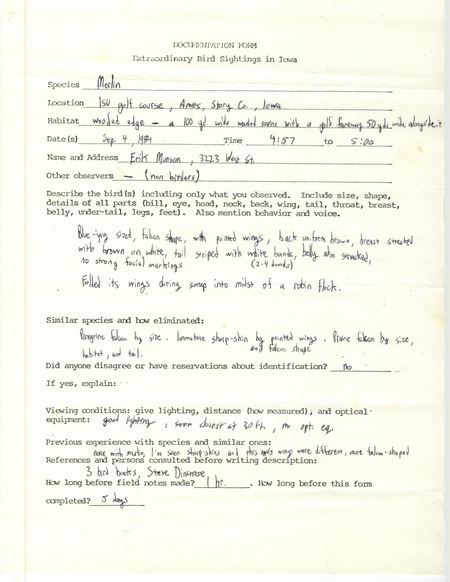 DOCUMENTATION FORM
Extraordinary Bird Sightings in Iowa
Species Merlin
Location ISU golf course, Ames, Story Co., Iowa
Habitat wooded edge - a 100 yd. wide wooded ravine with a golf fareway 50 yds. wide alongside it.
Date(s) Sep. 4, 1984 Time 4:57 to 5:00
Name and Address Erik Munson, 3223 West St.
Other observers - (non birders)
Describe the bird(s) including only what you observed. Include size, shape,
details of all parts (bill, eye, head, neck, back, wing, tail, throat, breast,
belly, under-tail, legs, feet). Also mention behavior and voice.
Blue-jay sized, falcon shape, with pointed wings, back uniform brown, breast streaked
with brown on white, tail striped with white bands, belly also streaked,
no strong facial markings (2-4 bands)
Folled its wings during swoop into midst of a robin flock.
Similar species and how eliminated:
Peregrine falcon by size. Immature sharp-shin by pointed wings. Prairie falcon by size,
and falcon shape
habitat, and tail.
Did anyone disagree or have reservations about identification? no
If yes, explain:
Viewing conditions: give lighting, distance (how measured), and optical
equipment: good lighting, seen closest at 30 ft, no opt. eq.
Previous experience with species and similar ones:
none with merlin, I've seen sharp-shins and this ones wings were different, more falcon-shaped
References and persons consulted before writing description:
3 bird books, Steve Dinsmore
How long before field notes made? 1 hr. . How long before this form
completed? 5 days